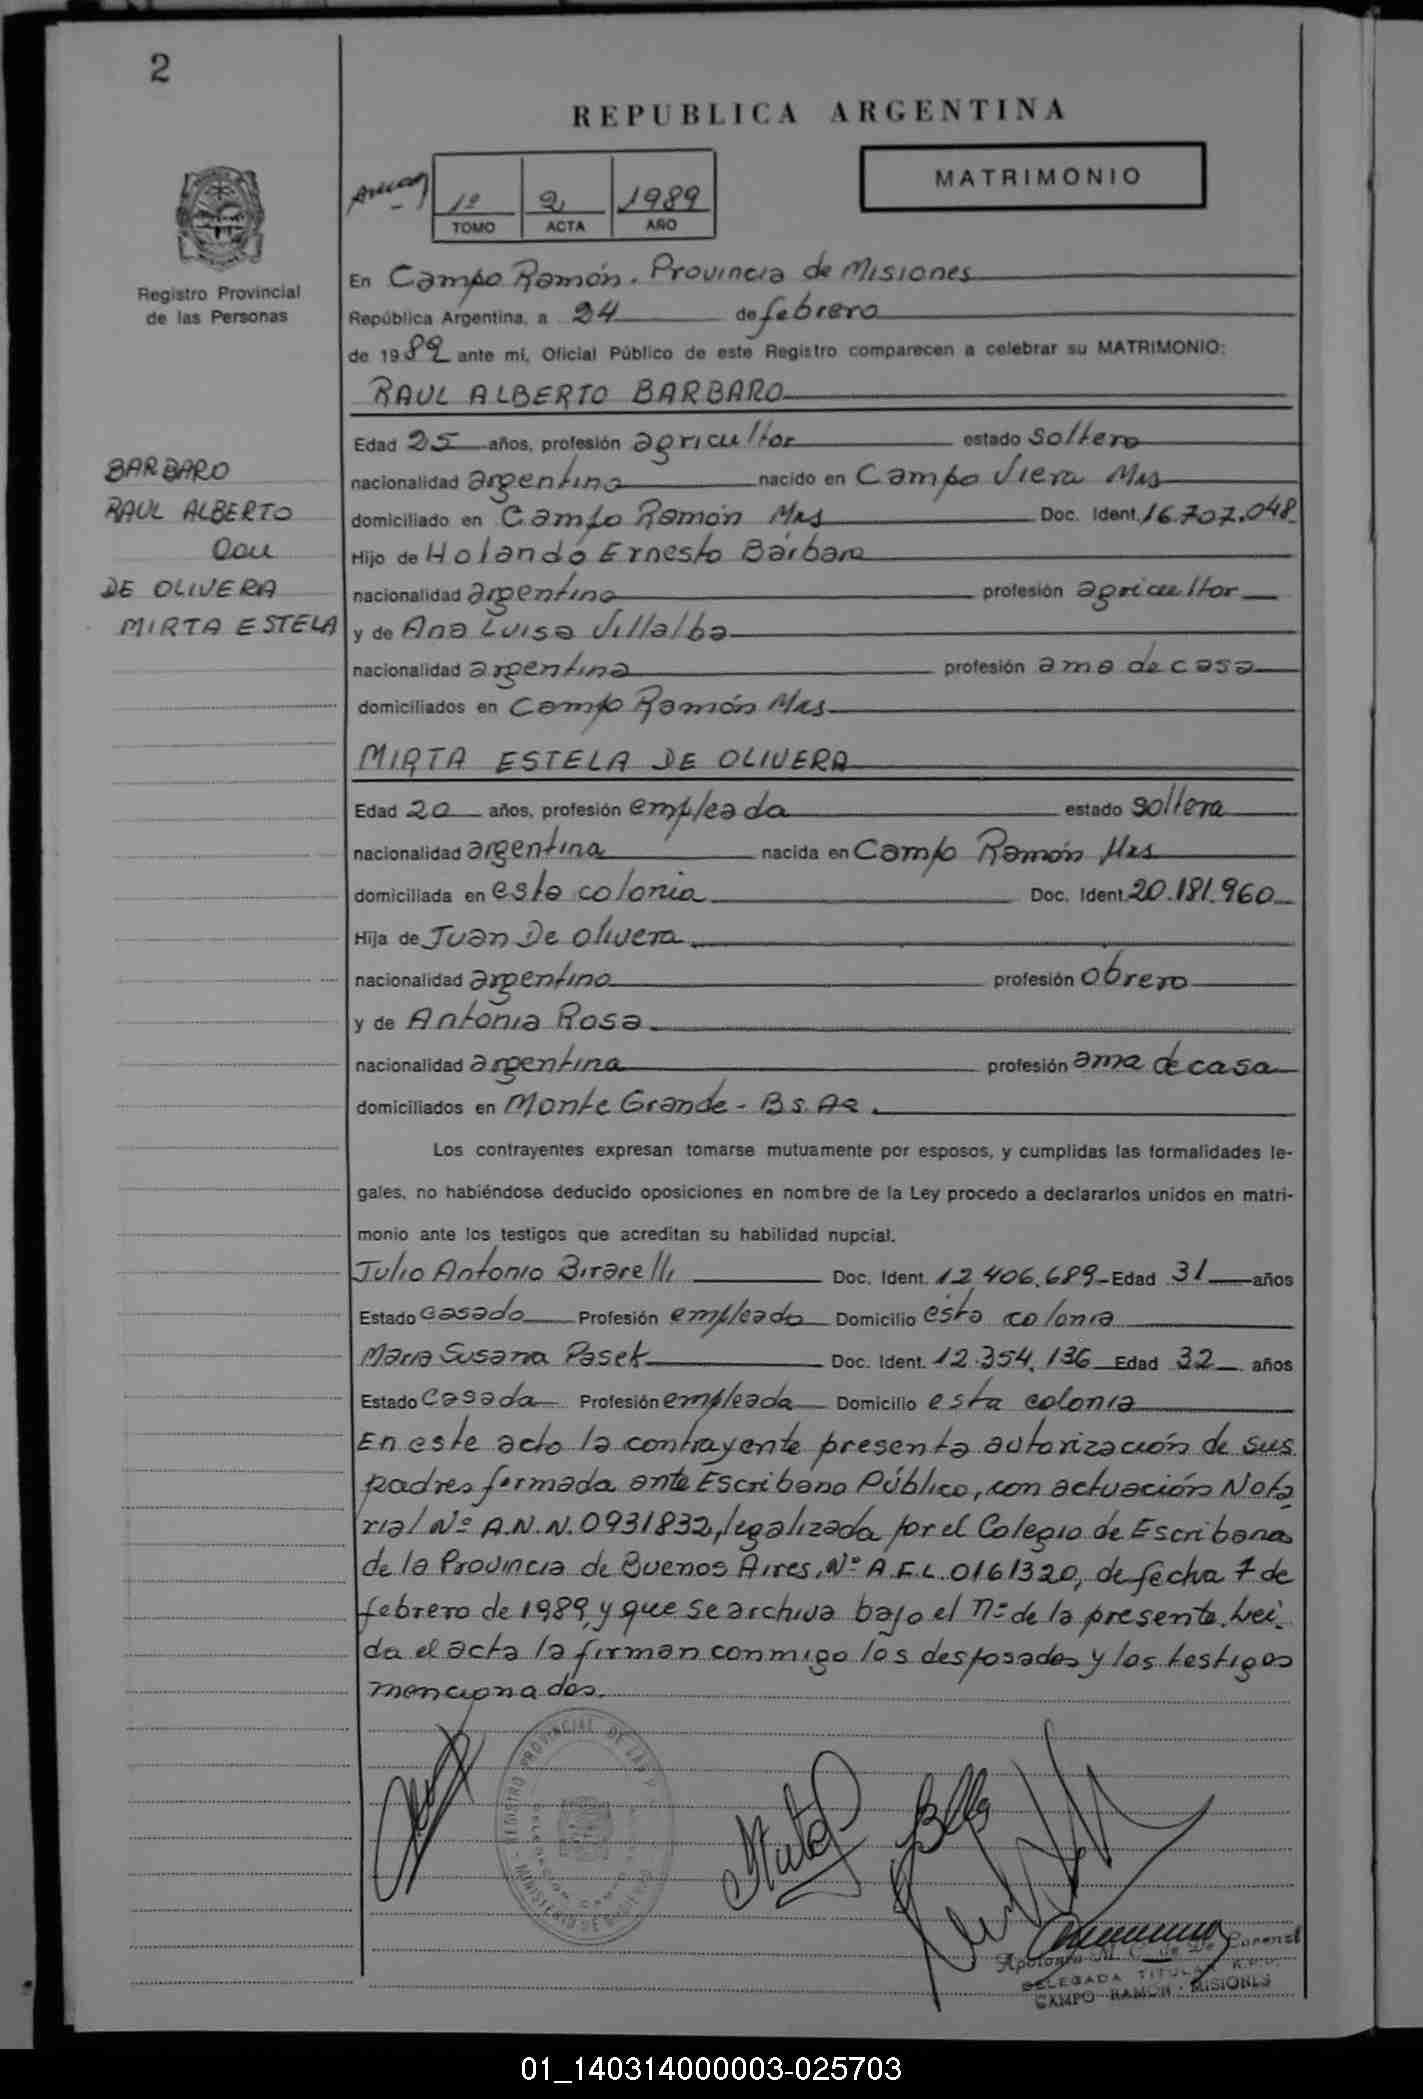 2
REPUBLICA ARGENTINA
MATRIMONIO
1º 2 1989
TOMO ACTA AÑO
Registro Provincial
de las Personas
En Campo Ramón. Provincia de Misiones
República Argentina, a 24 de febrero
de 1989 ante mí, Oficial Público de este Registro comparecen a celebrar su MATRIMONIO:
RAUL ALBERTO BARBARO
Edad 25 años, profesión agricultor estado soltero
nacionalidad argentino nacido en Campo Viera Mns
domiciliado en Campo Ramón Mns Doc. Ident. 16.707.048
Hijo de Holando Ernesto Bárbaro
nacionalidad argentino profesión agricultor
y de Ana Luisa Villalba
nacionalidad argentina profesión ama de casa
domiciliados en Campo Ramón Mns
BARBARO
RAUL ALBERTO
con
DE OLIVERA
MIRTA ESTELA
MIRTA ESTELA DE OLIVERA
Edad 20 años, profesión empleada estado soltera
nacionalidad argentina nacida en Campo Ramón Mns
domiciliada en esta colonia Doc. Ident. 20.181.960
Hija de Juan De Olivera
nacionalidad argentino profesión obrero
y de Antonia Rosa
nacionalidad argentina profesión ama de casa
domiciliados en Monte Grande - Bs. As.
Los contrayentes expresan tomarse mutuamente por esposos, y cumplidas las formalidades le-
gales, no habiéndose deducido oposiciones en nombre de la Ley procedo a declararlos unidos en matri-
monio ante los testigos que acreditan su habilidad nupcial.
Julio Antonio Birarelli Doc. Ident. 12.406.689 Edad 31 años
Estado casado Profesión empleado Domicilio esta colonia
Maria Susana Paset Doc. Ident. 12.354.136 Edad 32 años
Estado casada Profesión empleada Domicilio esta colonia
En este acto la contrayente presenta autorización de sus
padres firmada ante Escribano Público, con actuación Nota
rial Nº A.N.N. 0931832, legalizada por el Colegio de Escribanos
de la Provincia de Buenos Aires, Nº A.F.L. 0161320, de fecha 7 de
febrero de 1989 y que se archiva bajo el nº de la presente. Leí-
da el acta la firman conmigo los desposados y los testigos
mencionados.
REGISTRO PROVINCIAL DE LAS
MINISTERIO DE GOBIERNO
DELEGACION CAMPO
Apolonia M. C. de De Lorenzi
DELEGADA TITULAR R.P.P.
CAMPO RAMON - MISIONES
01_140314000003-025703